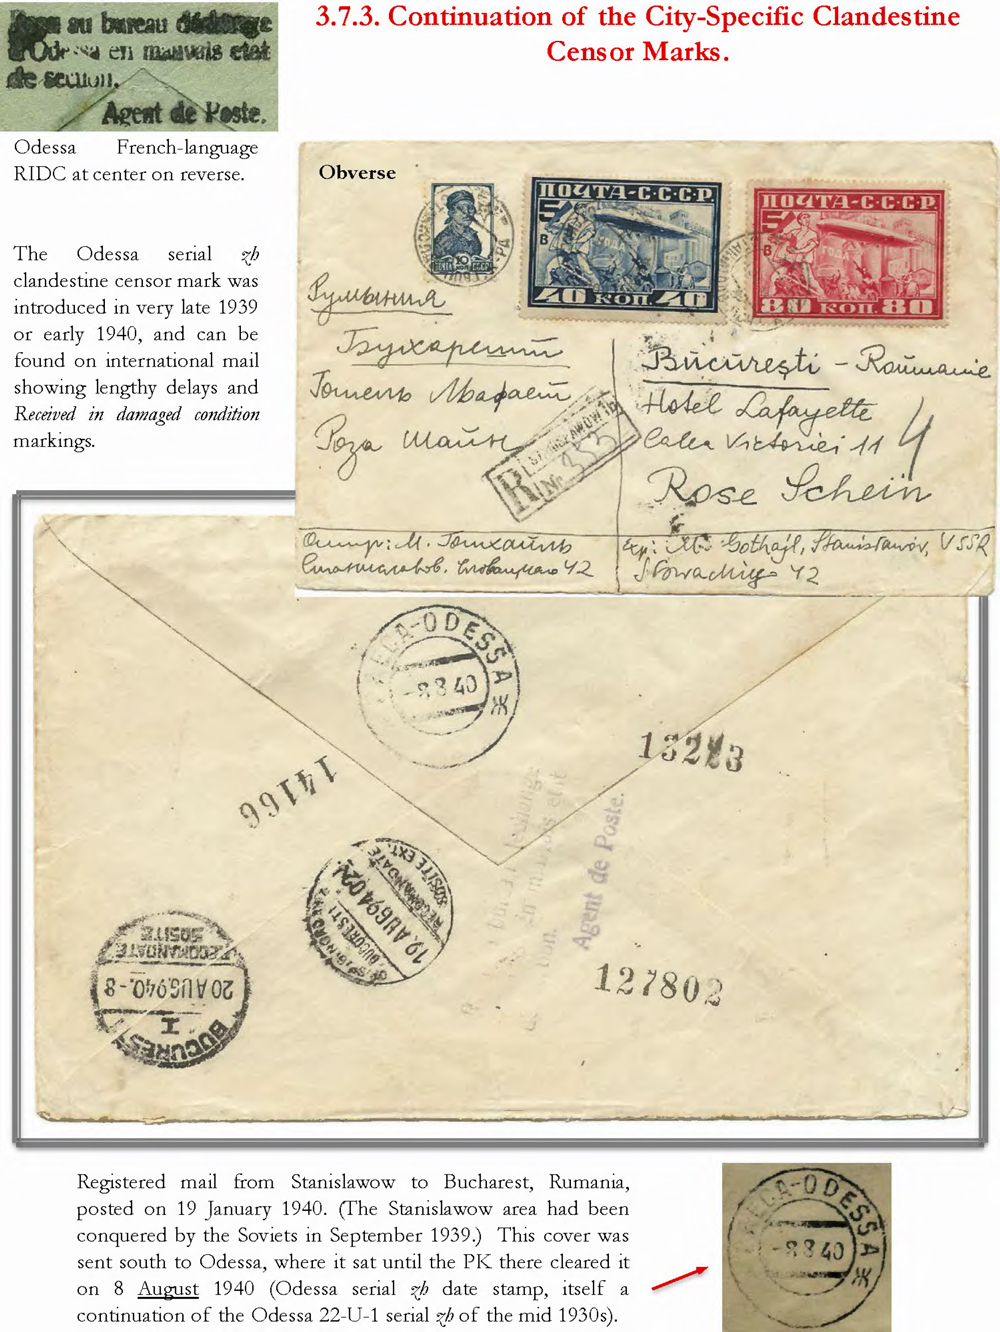 3.7.3. Continuation of the City-Specific Clandestine
Censor Marks.
au bureau
Odessa en mauvais etat
de
Agent de Poste.
Odessa French-language
RIDC at center on reverse.
The Odessa serial zh
clandestine censor mark was
introduced in very late 1939
or early 1940, and can be
found on international mail
showing lengthy delays and
Received in damaged condition
markings.
Obverse
10
ПОЧТА СССР
ПОЧТА-С·С·С·Р.
5 В 4
40 КОП. 40
ПОЧТА-С·С·С·Р.
5 В 4
80 КОП. 80
Румыния
Бухарешт
Готель Лафает
Роза Шайн
București - Roumanie
Hotel Lafayette
Calea Victoriei 11
4
Rose Schein
R STANISŁAWÓW 1D
№ 353
Отпр: М. Готхайль
Станиславов. Словацкого 42
Exp: M. Gothajl, Stanisławów, VSSR
42
ODESSA Ж
-8 8 40
14166
132 3
Agent de Poste.
127802
BUCURESTI
RECOMANDATE
SOSITE EXT.
19. AUG 940
RECOMANDATE
SOSITE
20 AUG. 940.-8
I
BUCURESTI
Registered mail from Stanislawow to Bucharest, Rumania,
posted on 19 January 1940. (The Stanislawow area had been
conquered by the Soviets in September 1939.) This cover was
sent south to Odessa, where it sat until the PK there cleared it
on 8 August 1940 (Odessa serial zh date stamp, itself a
continuation of the Odessa 22-U-1 serial zh of the mid 1930s).
ODESSA Ж
-8 8 40